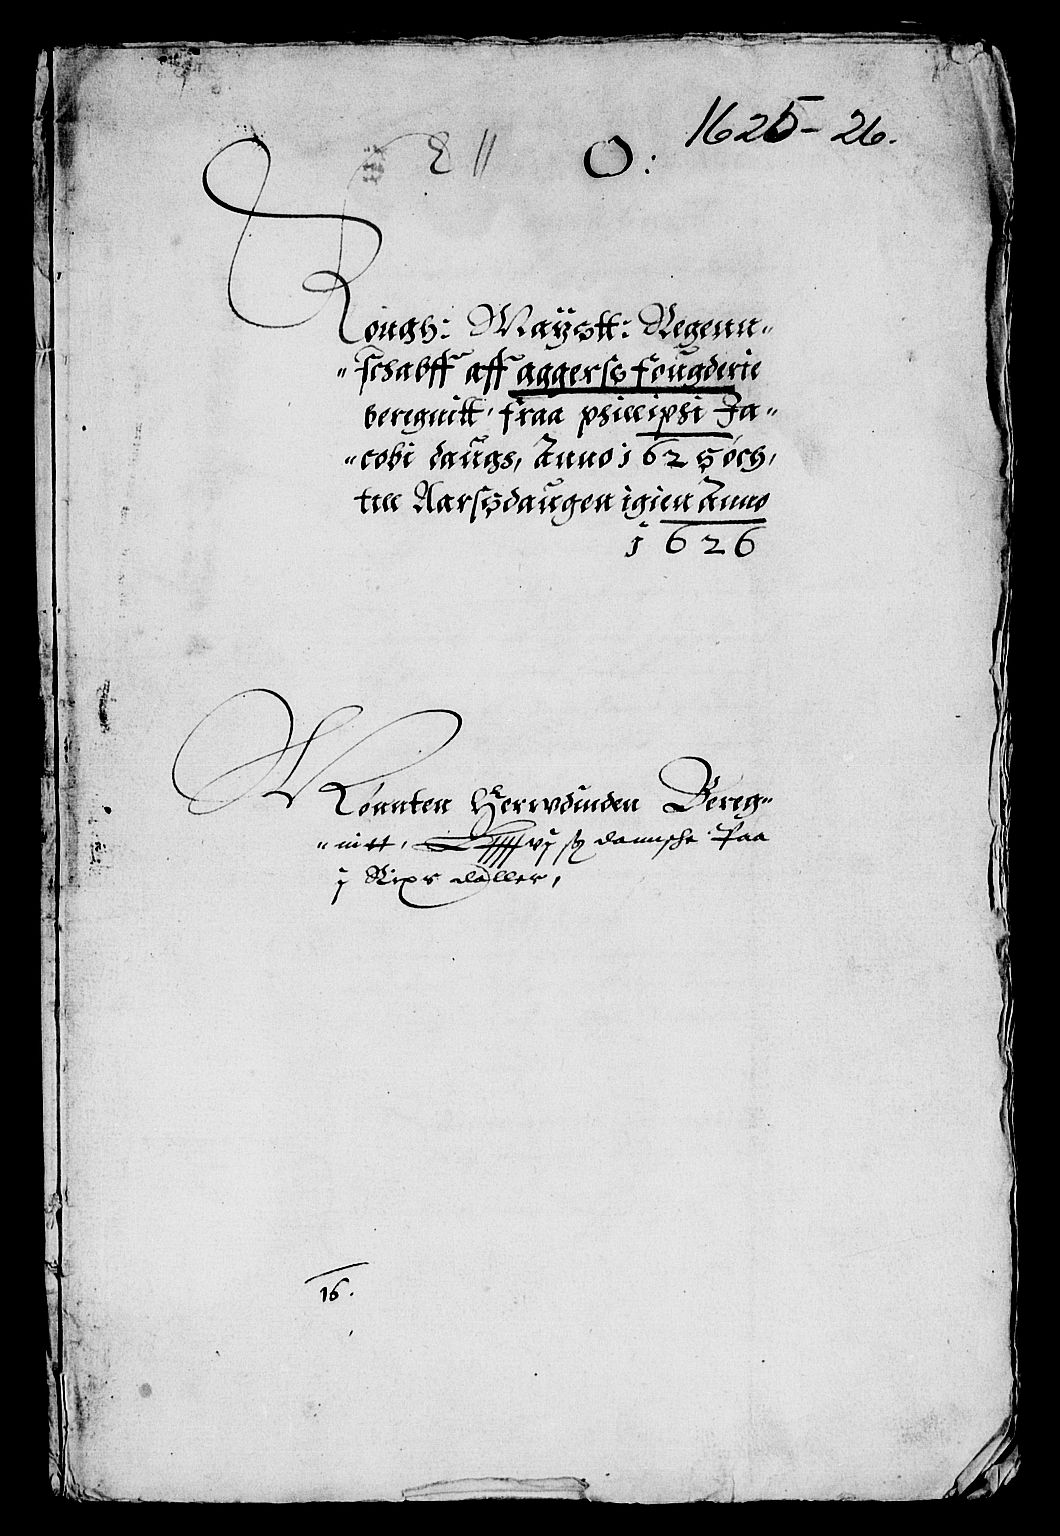 1625-26.
O:
Kongh: Maystt: Regenn-
-schabff aff aggers fougderie
beregnitt, fraa phillipsi Ja-
-cobi daugs, Anno 1625 och,
till Aarsdaugen igien Anno
1626
Mönnten herwdinden Bereg-
-nitt, vj danische Paa
j Rixs daller,
16.